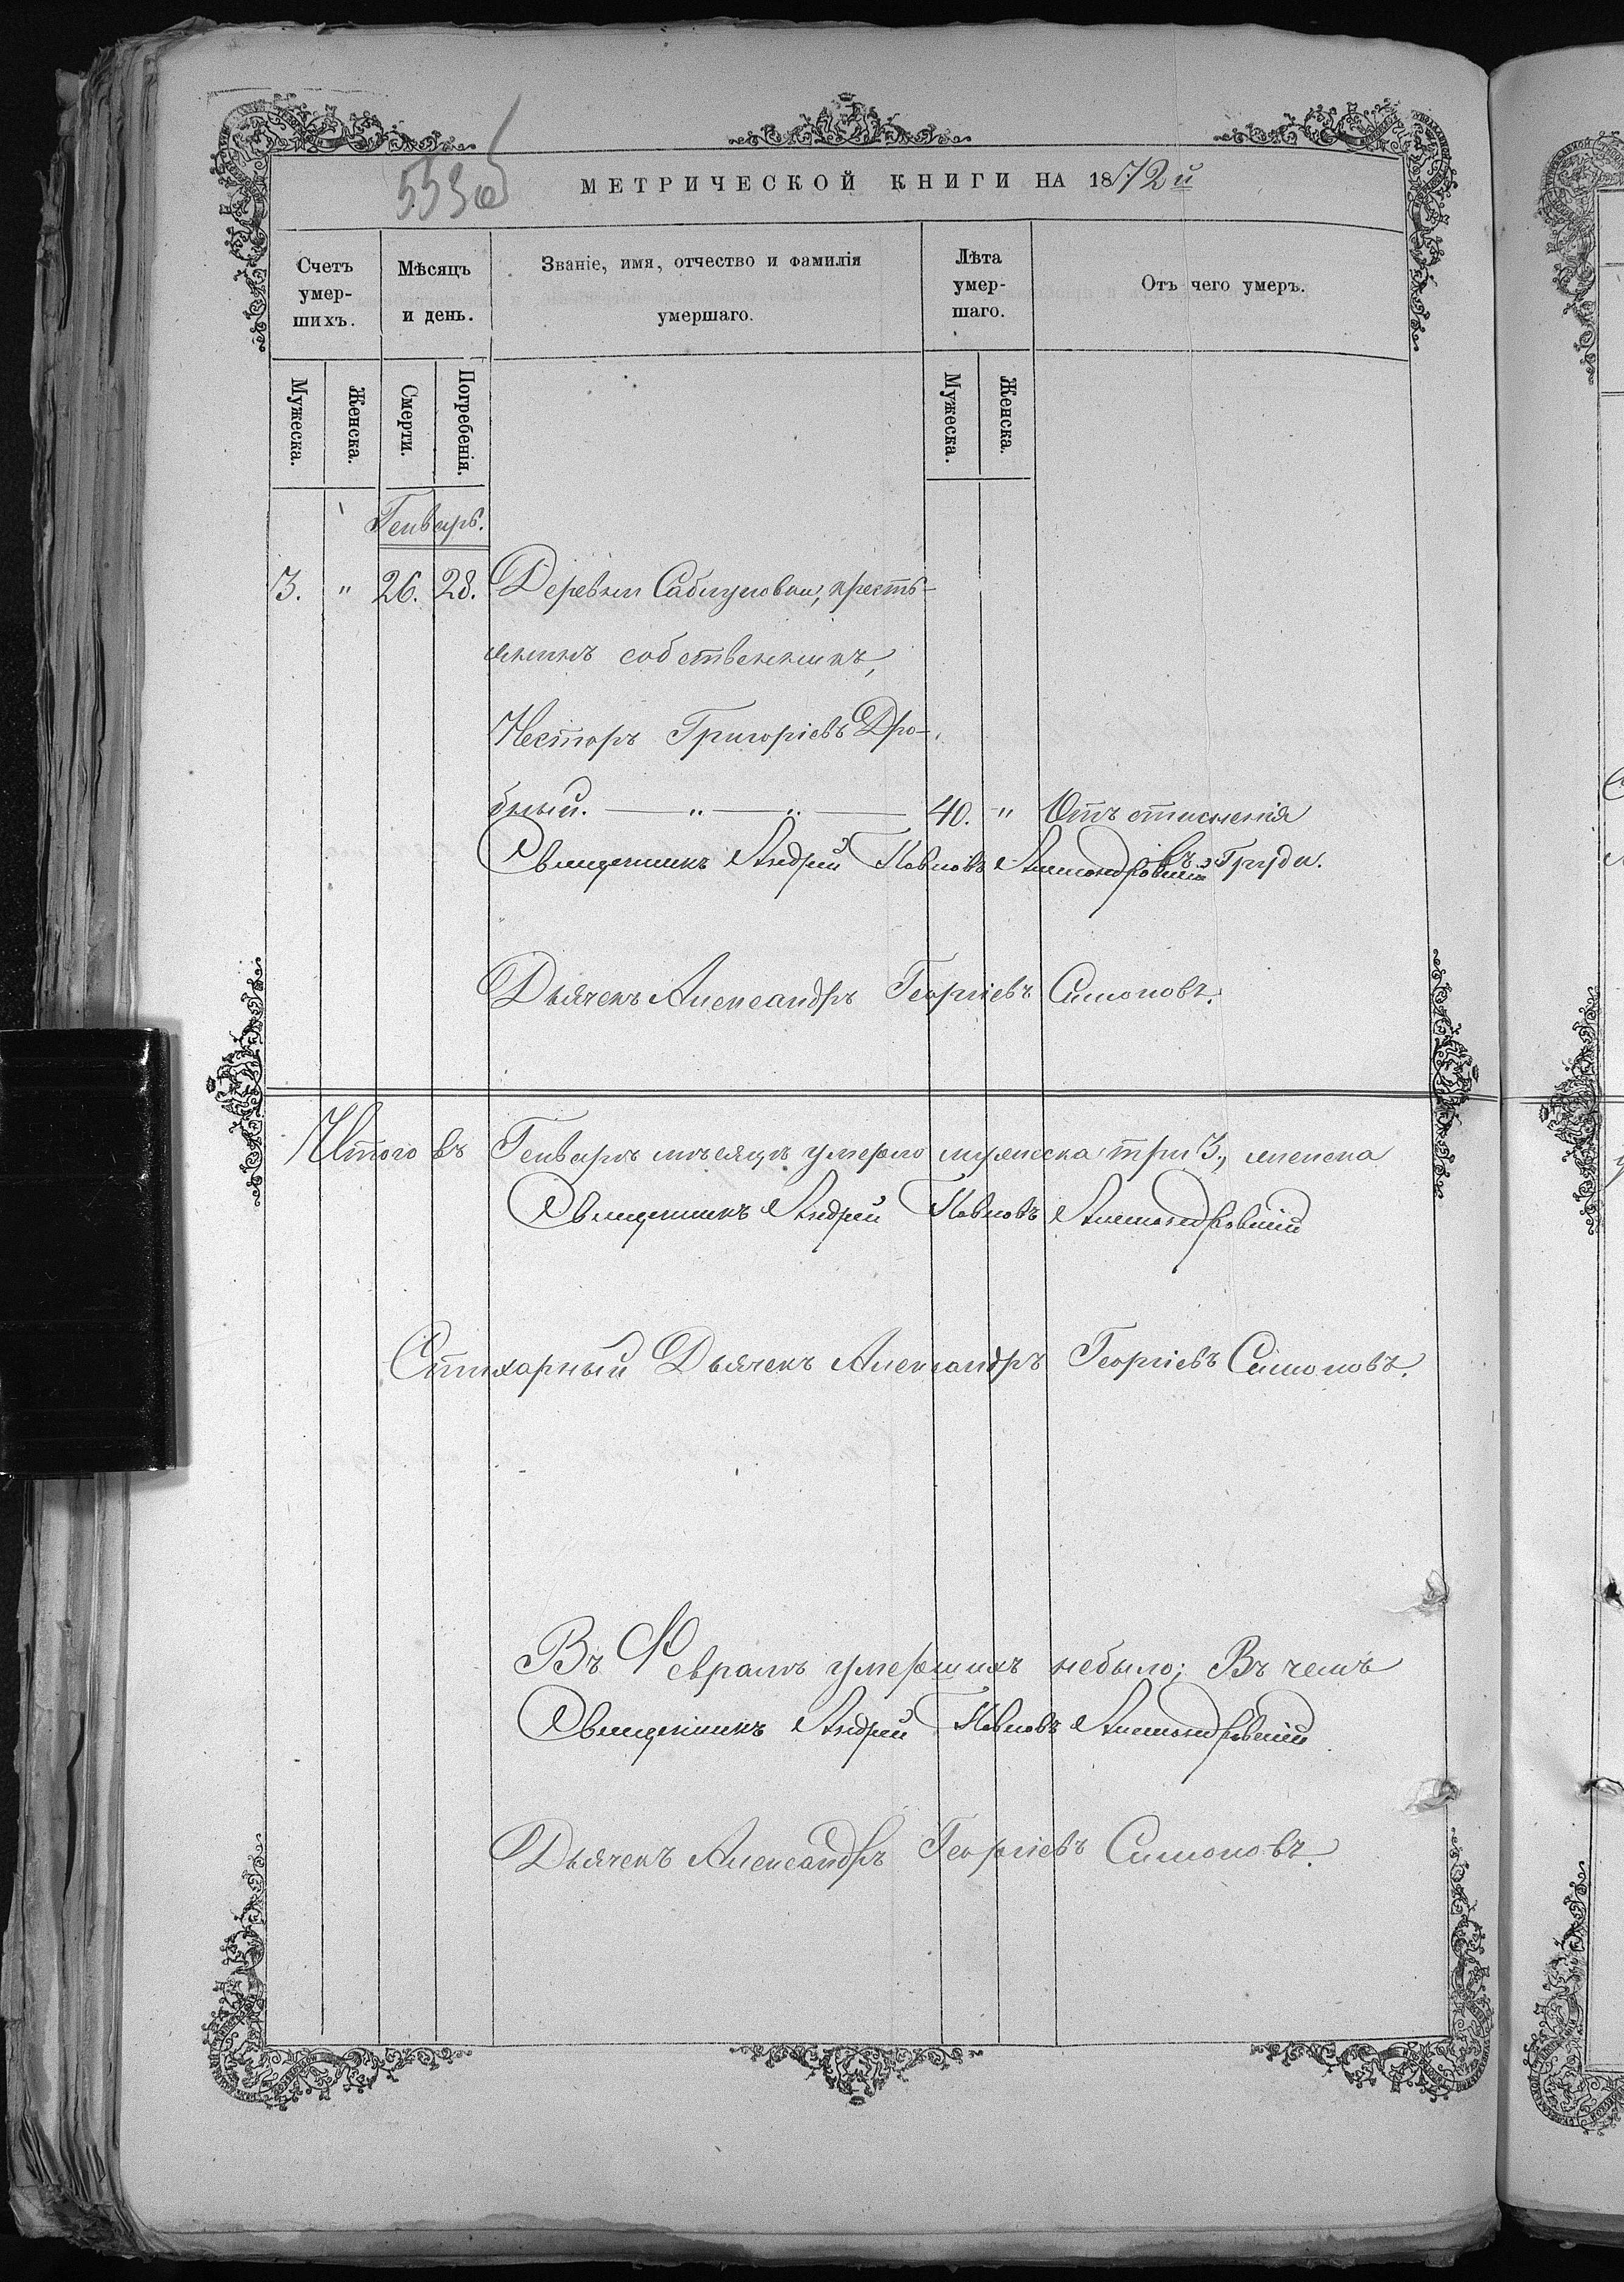 553об
МЕТРИЧЕСКОЙ КНИГИ НА 1872й
Счетъ умер-шихъ.
Мѣсяцъ и день.
Званіе, имя, отчество и фамилія умершаго.
Лѣта умер-шаго.
Отъ чего умеръ.
Мужеска.
Женска.
Смерти.
Погребенія.
Мужеска.
Женска.
Генварь.
3. " 26. 28. Деревни Саблуковки, кресть-
янинъ собственникъ,
Несторъ Григоріевъ Дро-
бный. — " — " — 40. " Отъ стисненія
въ груди.
Священникъ Андрей Павловъ
Дьячекъ Александръ Георгіевъ Симоновъ.
Итого въ Генварѣ мѣсяцѣ умерло мужеска три 3., женска
Священникъ Андрей Павловъ
Стихарный Дьячекъ Александръ Георгіевъ Симоновъ.
Въ Февралѣ умершихъ небыло; Въ чемъ
Священникъ Андрей Павловъ
Дьячекъ Александръ Георгіевъ Симоновъ.